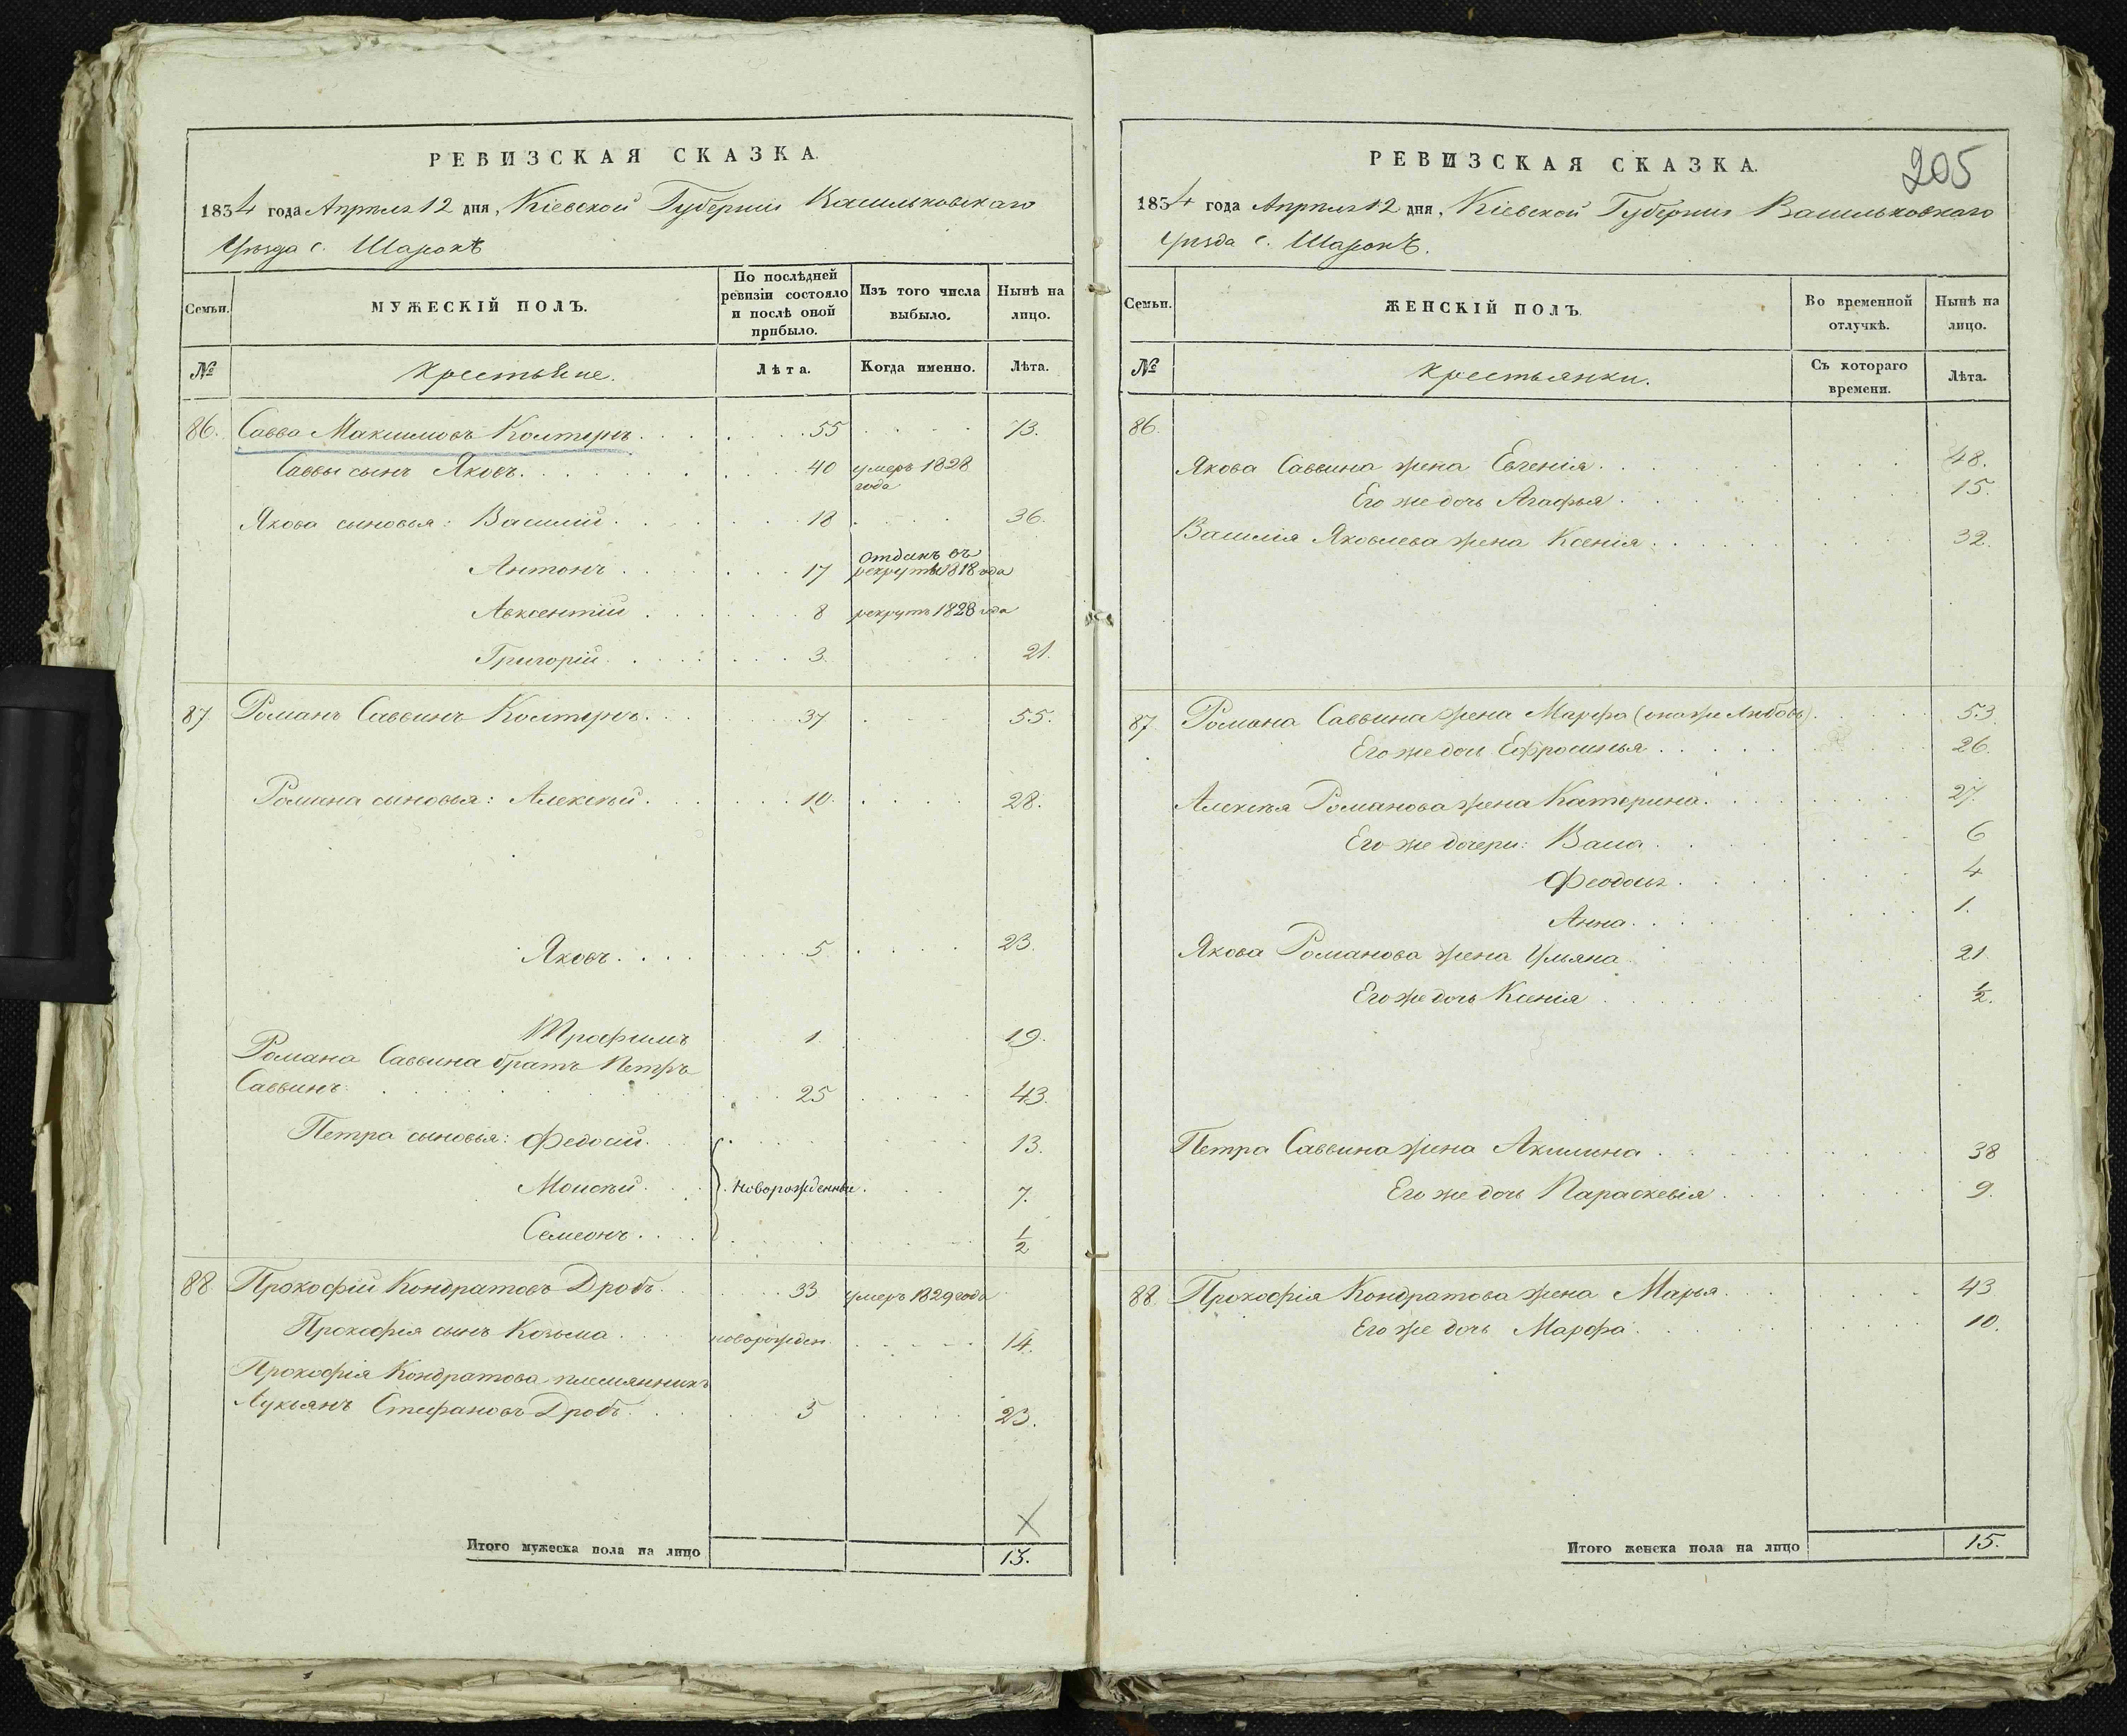 РЕВИЗСКАЯ СКАЗКА.
1834 года Апрѣля 12 дня, Кіевской Губерніи Васильковскаго
Уѣзда с. Шарокъ
Семьи.
МУЖЕСКІЙ ПОЛЪ.
По послѣдней ревизіи состояло и послѣ оной прибыло.
Изъ того числа выбыло.
Нынѣ на лицо.
№
Крестьяне.
Лѣта.
Когда именно.
Лѣта.
86. Савва Максимовъ 55 73.
Саввы сынъ Яковъ 40 умеръ 1828 года
Якова сыновья: Василій 18 36.
Антонъ 17 отданъ въ рекруты 1818 года
Авксентій 8 рекрутъ 1828 года
Григорій 3. 21.
87 Романъ Саввинъ 37 55.
Романа сыновья: Алексѣй 10. 28.
Яковъ 5 23.
Трофимъ 1 19.
Романа Саввина братъ Петръ
Саввинъ 25 43.
Петра сыновья: Федосій 13.
Моисѣй новорожденные 7.
Семеонъ ½
88 Прокофій Кондратовъ Дробъ 33 умеръ 1829 года
Прокофія сынъ Козьма новорожден 14.
Прокофія Кондратова племянникъ
Лукьянъ Стефановъ Дробъ 5 23.
Итого мужеска пола на лицо 13.
205
РЕВИЗСКАЯ СКАЗКА.
1834 года Апрѣля 12 дня, Кіевской Губерніи Васильковскаго
Уѣзда с. Шарокъ.
Семьи.
ЖЕНСКІЙ ПОЛЪ.
Во временной отлучкѣ.
Нынѣ на лицо.
№
Крестьянки.
Съ котораго времени.
Лѣта.
86.
Якова Саввина жена Евгенія 48.
Его же дочь Агафья 15.
Василія Яковлева жена Ксенія 32.
87. Романа Саввина жена Марфа (она же Любовь) 53.
Его же дочь Ефросинья 26.
Алексѣя Романова жена Катерина 27.
Его же дочери: Васса 6
Феодосья 4
Анна 1.
Якова Романова жена Ульяна 21
Его же дочь Ксенія ½.
Петра Саввина жена Акилина 38
Его же дочь Параскевія 9.
88. Прокофія Кондратова жена Марья 43
Его же дочь Марфа 10.
Итого женска пола на лицо 15.